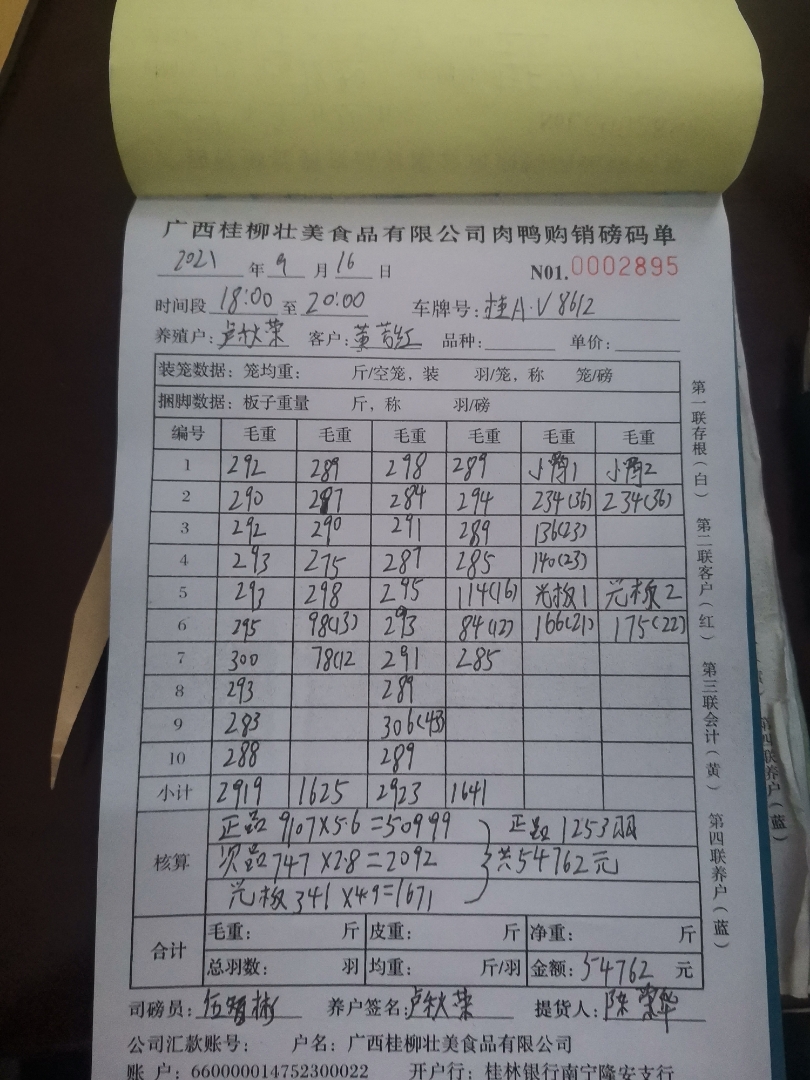 广西桂柳壮美食品有限公司肉鸭购销磅码单
2021 年 9 月 16 日 N01. 0002895
时间段 18:00 至 20:00 车牌号: 桂A·V8612
养殖户: 卢秋荣 客户: 黄 红 品种: 单价:
装笼数据: 笼均重: 斤/空笼, 装 羽/笼, 称 笼/磅
捆脚数据: 板子重量 斤, 称 羽/磅
编号 毛重 毛重 毛重 毛重 毛重 毛重
1 292 289 298 289 小 1 小 2
2 290 287 284 294 234(36) 234(36)
3 292 290 291 289 136(23)
4 293 275 287 285 140(23)
5 293 298 295 114(16) 光板1 光板2
6 295 98(13) 293 84(12) 166(21) 175(22)
7 300 78(12 291 285
8 293 289
9 283 306(43)
10 288 289
小计 2919 1625 2923 1641
核算 正品 9107×5.6=50999 正品 1253羽
次品 747×2.8=2092 共54762元
光板 341×4.9=1671
合计 毛重: 斤 皮重: 斤 净重: 斤
总羽数: 羽 均重: 斤/羽 金额: 54762 元
司磅员: 伍 彬 养户签名: 卢秋荣 提货人: 陈 华
公司汇款账号: 户名: 广西桂柳壮美食品有限公司
账 户: 660000014752300022 开户行: 桂林银行南宁隆安支行
第一联存根(白) 第二联客户(红) 第三联会计(黄) 第四联养户(蓝)